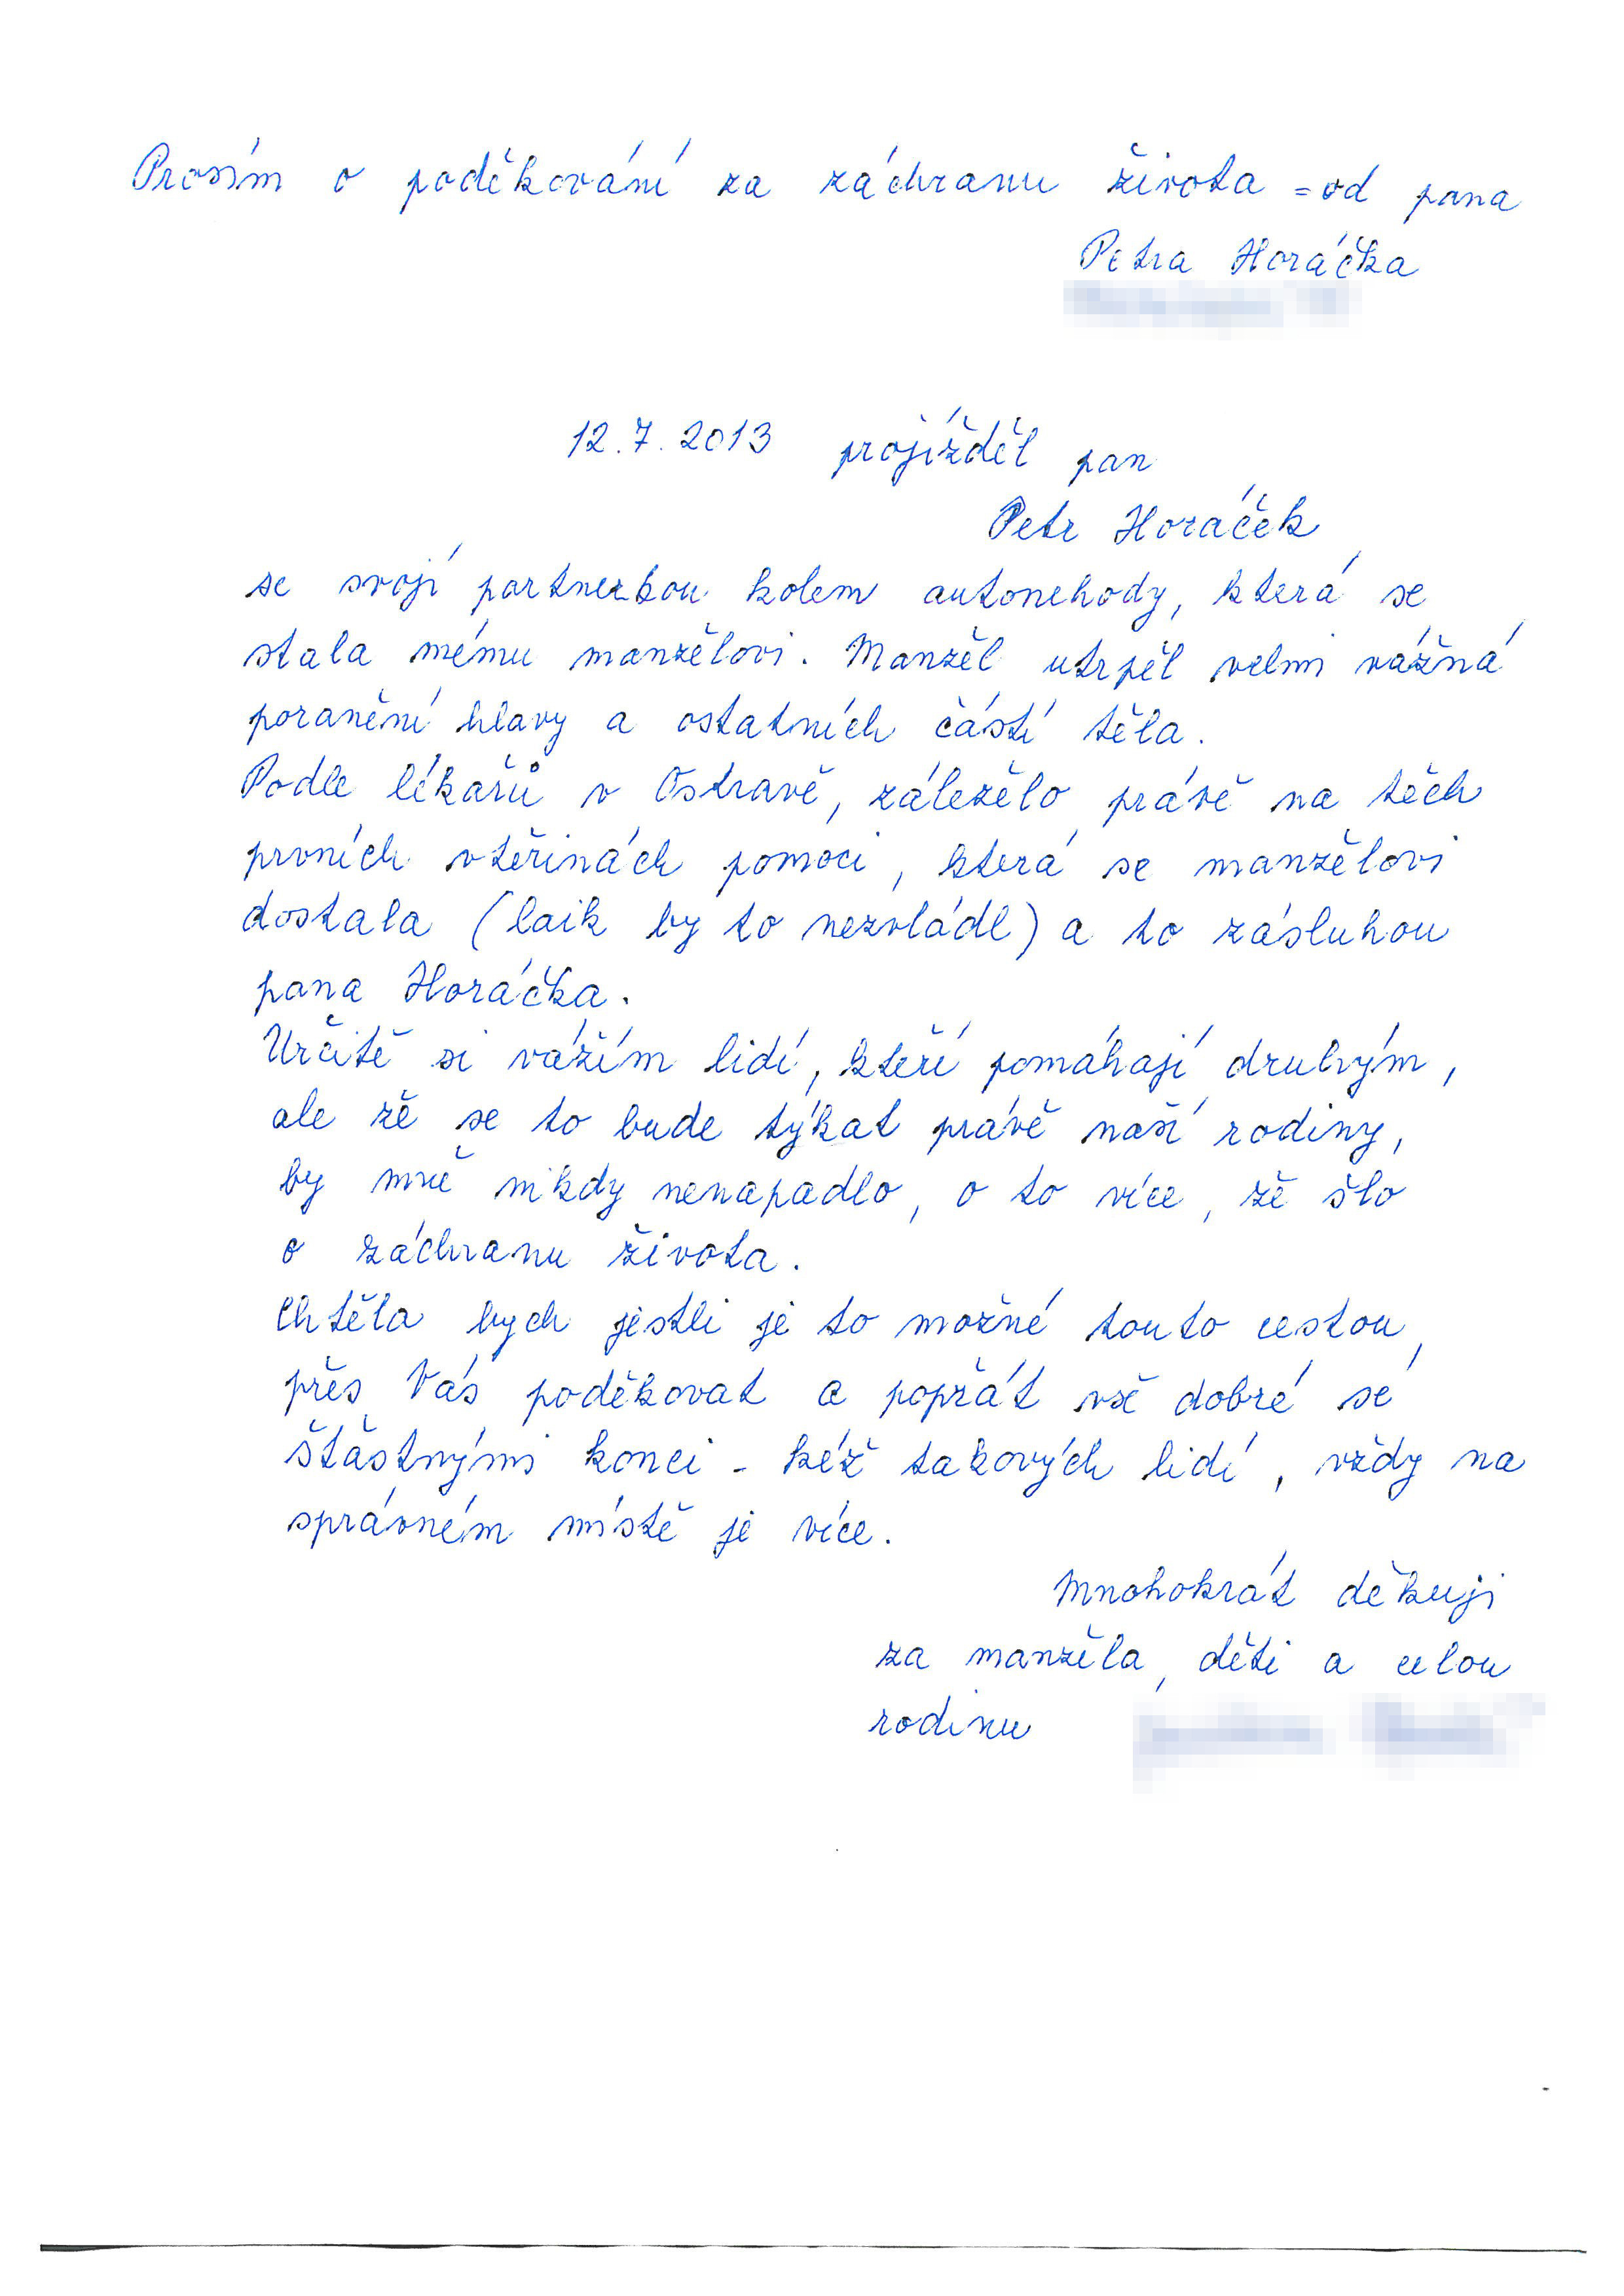 Prosím o poděkování za záchranu života = od pana
Petra Horáčka
12.7.2013 projížděl pan
Petr Horáček
se svojí partnerkou kolem autonehody, která se
stala mému manželovi. Manžel utrpěl velmi vážná
poranění hlavy a ostatních částí těla.
Podle lékařů v Ostravě, záleželo právě na těch
prvních vteřinách pomoci, která se manželovi
dostala (laik by to nezvládl) a to zásluhou
pana Horáčka.
Určitě si vážím lidí, kteří pomáhají druhým,
ale že se to bude týkat právě naší rodiny,
by mně nikdy nenapadlo, o to více, že šlo
o záchranu života.
Chtěla bych jestli je to možné touto cestou,
přes Vás poděkovat a popřát vše dobré se
šťastnými konci - kéž takových lidí, vždy na
správném místě je více.
Mnohokrát děkuji
za manžela, děti a celou
rodinu